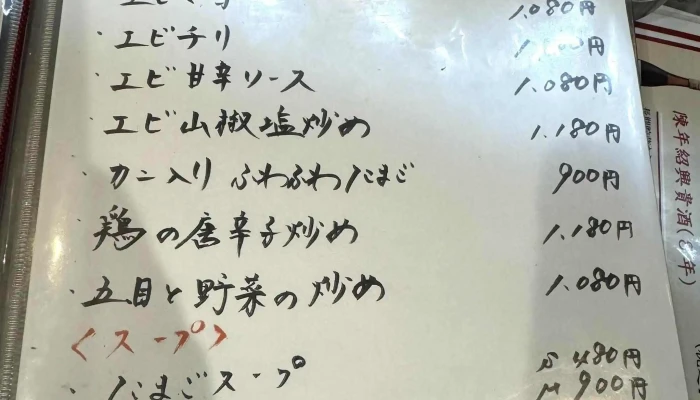 ・エビチリ
・エビ甘辛ソース 1,080円
エビ山椒塩炒め 1,180円
・カニ入りふわふわたまご 900円
・鶏の唐辛子炒め 1,180円
・五目と野菜の炒め 1,080円
〈スープ〉
・たまごスープ 480円
900円
1,080円
陳年紹興貴酒